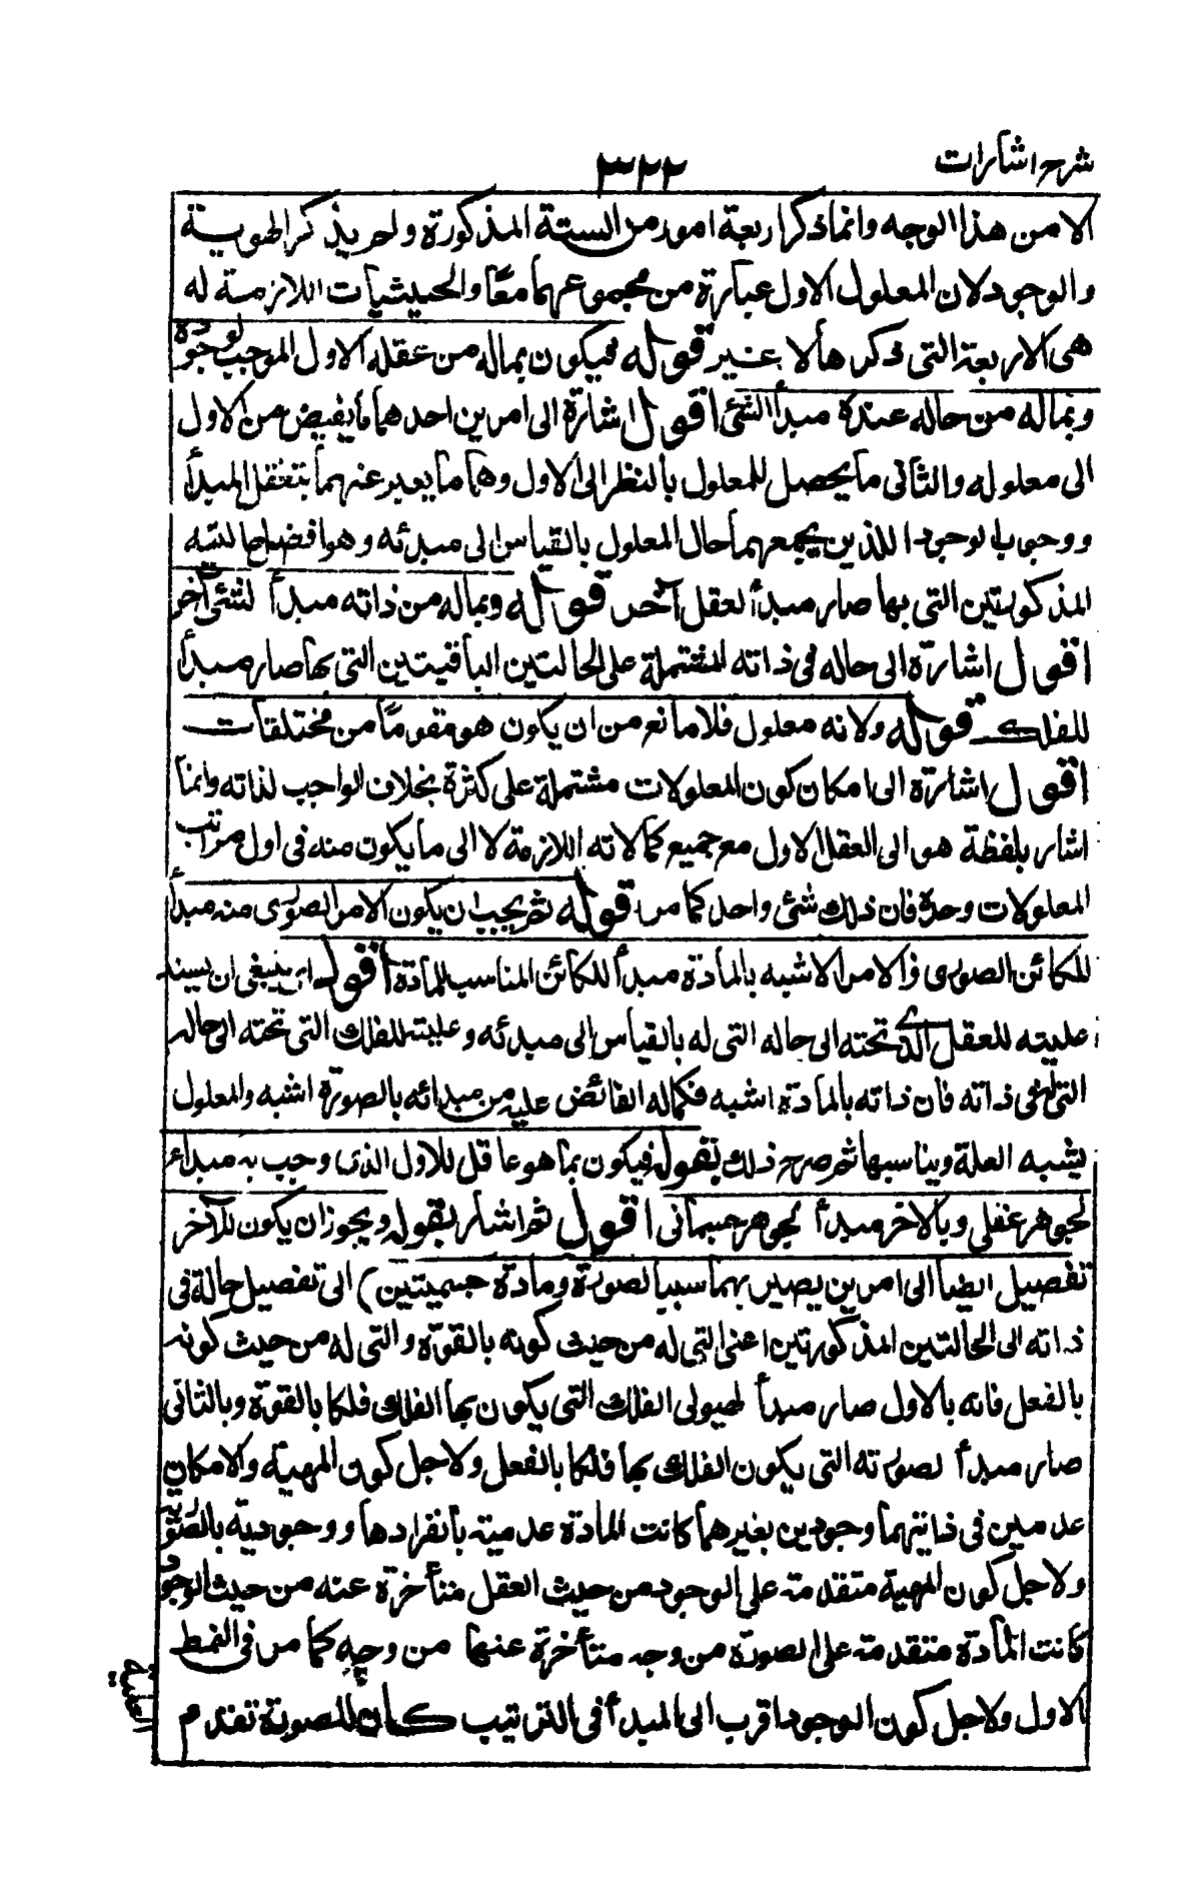 شرح اشارات
٣٢٢
الا من هذا الوجه وانما ذكر اربعة امور من الستة المذكورة ولم يذكر الهوية
والوجود لان المعلول الاول عبارة من مجموعهما معًا والحيثيات اللازمة له
هى الاربعة التى ذكرها لا غير قوله فيكون بماله من عقله الاول الموجب لوجوده
وبماله من حاله عنده مبدأ الشئ اقول اشارة الى امرين احدهما ما يفيض من الاول
الى معلوله والثانى ما يحصل للمعلول بالنظر الى الاول وهما ما يعبر عنهما بتعقل المبدأ
ووجوب الوجود اللذين يجمعهما حال المعلول بالقياس الى مبدئه وهو افضل حالتيه
المذكورتين التى بها صار مبدأ لعقل آخر قوله وبماله من ذاته مبدأ لشئ آخر
اقول اشارة الى حاله فى ذاته المشتملة على الحالتين الباقيتين التى بها صار مبدأ
للفلك قوله ولانه معلول فلا مانع من ان يكون هو مقومًا من مختلفات
اقول اشارة الى امكان كون المعلولات مشتملة على كثرة بخلاف الواجب لذاته وانما
اشار بلفظة هو الى العقل الاول مع جميع كمالاته اللازمة لا الى ما يكون منه فى اول مراتب
المعلولات وحدة فان ذلك شئ واحد كما مر قوله ثم يجب ان يكون الامر الصورى منه مبدأ
للكائن الصورى والامر الاشبه بالمادة مبدأ للكائن المناسب للمادة اقول اى ينبغى ان يسند
عليته للعقل الذى تحته الى حاله التى له بالقياس الى مبدئه وعليته للفلك التى تحته الى حاله
التى له فى ذاته فان ذاته بالمادة اشبه فكماله الفائض عليه من مبدائه بالصورة اشبه والمعلول
يشبه العلة ويناسبها ثم صرح ذلك بقوله فيكون بما هو عاقل للاول الذى وجب به مبداء
لجوهر عقلى وبالآخر مبدأ لجوهر جسمانى اقول ثم اشار بقوله ويجوز ان يكون للآخر
تفصيل ايضا الى امرين يصير بهما سببا لصورة ومادة جسميتين) الى تفصيل حالة فى
ذاته الى الحالتين المذكورتين اعنى التى له من حيث كونه بالقوة والتى له من حيث كونه
بالفعل فانه بالاول صار مبدأ لهيولى الفلك التى يكون بها الفلك فلكا بالقوة وبالثانى
صار مبدأ لصورته التى يكون الفلك بها فلكا بالفعل ولاجل كون المهية والامكان
عدميين فى ذاتيهما وجوديين بغيرهما كانت المادة عدمية بانفرادها ووجودية بالصورة
ولاجل كون المهية متقدمة على الوجود من حيث العقل متأخرة عنه من حيث الوجود
كانت المادة متقدمة على الصورة من وجه متأخرة عنها من وجه كما مر فى النمط
الاول ولاجل كون الوجود اقرب الى المبدأ فى الترتيب كان للصورة تقدم
العلية